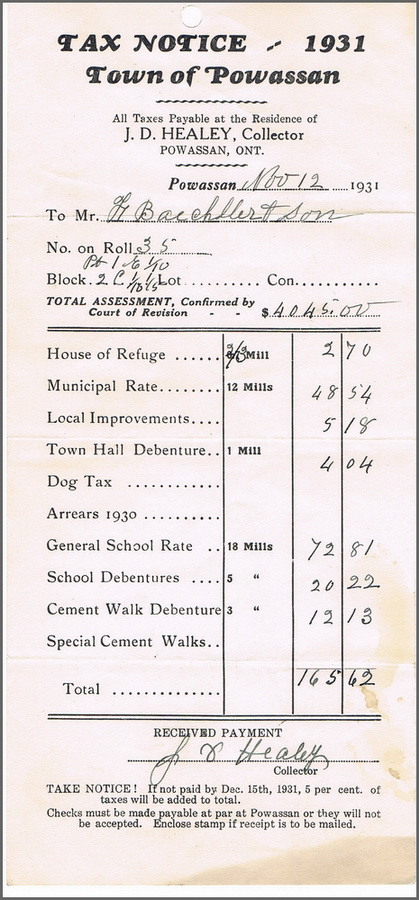 TAX NOTICE -- 1931
Town of Powassan
All Taxes Payable at the Residence of
J. D. HEALEY, Collector
POWASSAN, ONT.
Powassan Nov 12 1931
To Mr. & Son
No. on Roll 35
Block 2 Lot .......... Con. ..........
TOTAL ASSESSMENT, Confirmed by
Court of Revision - - $ 4045.00
House of Refuge ...... 2/3 Mill 2 70
Municipal Rate........ 12 Mills 48 54
Local Improvements.... 5 18
Town Hall Debenture.. 1 Mill 4 04
Dog Tax ............
Arrears 1930 ..........
General School Rate .. 18 Mills 72 81
School Debentures .... 5 " 20 22
Cement Walk Debenture 3 " 12 13
Special Cement Walks..
Total .............. 165 62
RECEIVED PAYMENT
J D Healey
Collector
TAKE NOTICE! If not paid by Dec. 15th, 1931, 5 per cent. of
taxes will be added to total.
Checks must be made payable at par at Powassan or they will not
be accepted. Enclose stamp if receipt is to be mailed.